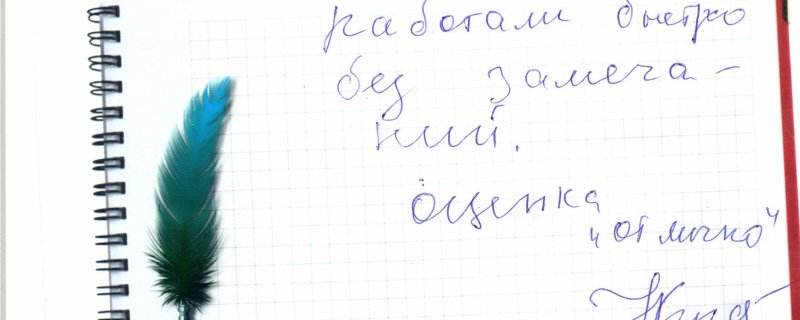 работали быстро
без замеча-
ний.
оценка
"отлично"